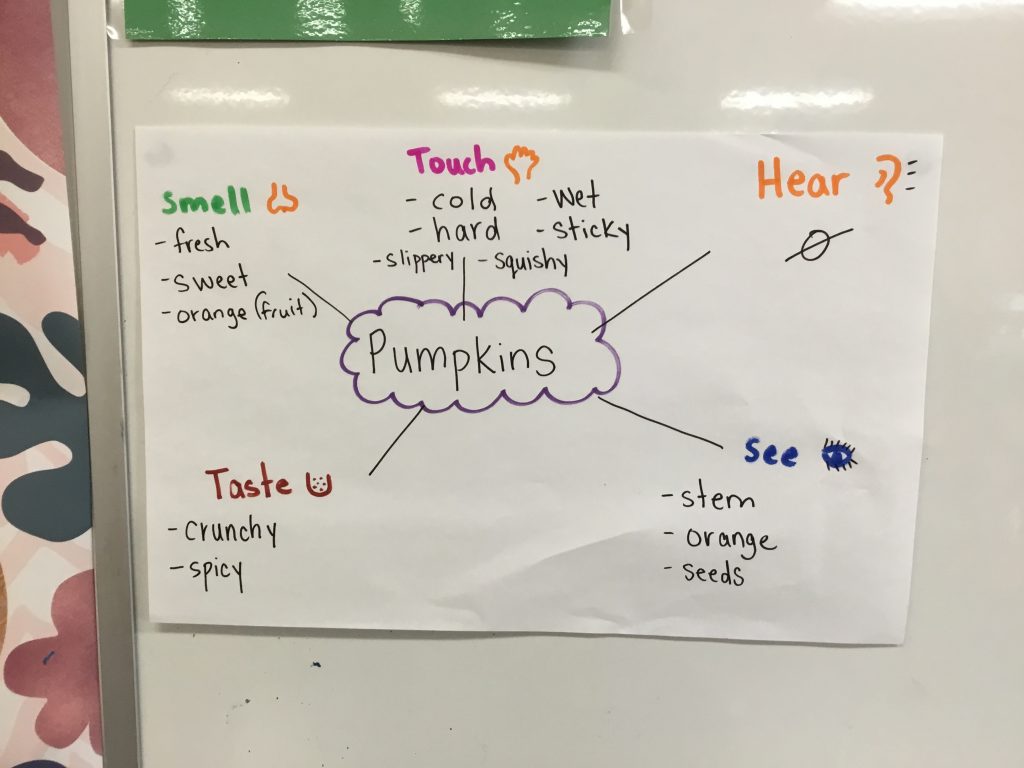 Smell
- fresh
- sweet
- orange (fruit)
Touch
- cold - wet
- hard - sticky
- slippery - squishy
Hear
∅
Pumpkins
Taste
- crunchy
- spicy
See
- stem
- orange
- seeds